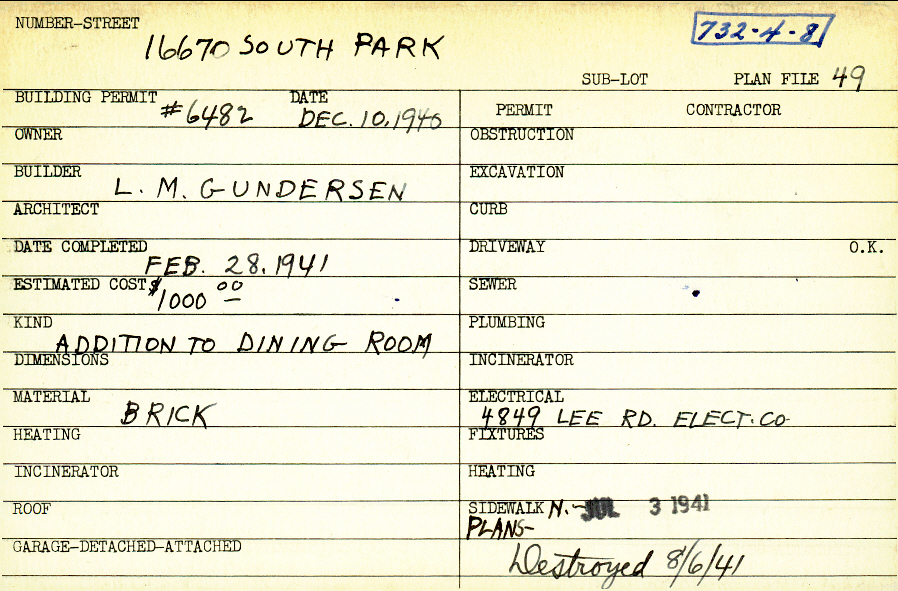 NUMBER-STREET
16670 SOUTH PARK
732-4-8
SUB-LOT PLAN FILE 49
BUILDING PERMIT #6482 DATE DEC. 10, 1940
PERMIT CONTRACTOR
OWNER
OBSTRUCTION
BUILDER L. M. GUNDERSEN
EXCAVATION
ARCHITECT
CURB
DATE COMPLETED FEB. 28, 1941
DRIVEWAY O.K.
ESTIMATED COST $1000 00
SEWER
KIND ADDITION TO DINING ROOM
PLUMBING
DIMENSIONS
INCINERATOR
MATERIAL BRICK
ELECTRICAL 4849 LEE RD. ELECT. CO
HEATING
FIXTURES
INCINERATOR
HEATING
ROOF
SIDEWALK N. - JUL 3 1941
PLANS-
GARAGE-DETACHED-ATTACHED
Destroyed 8/6/41